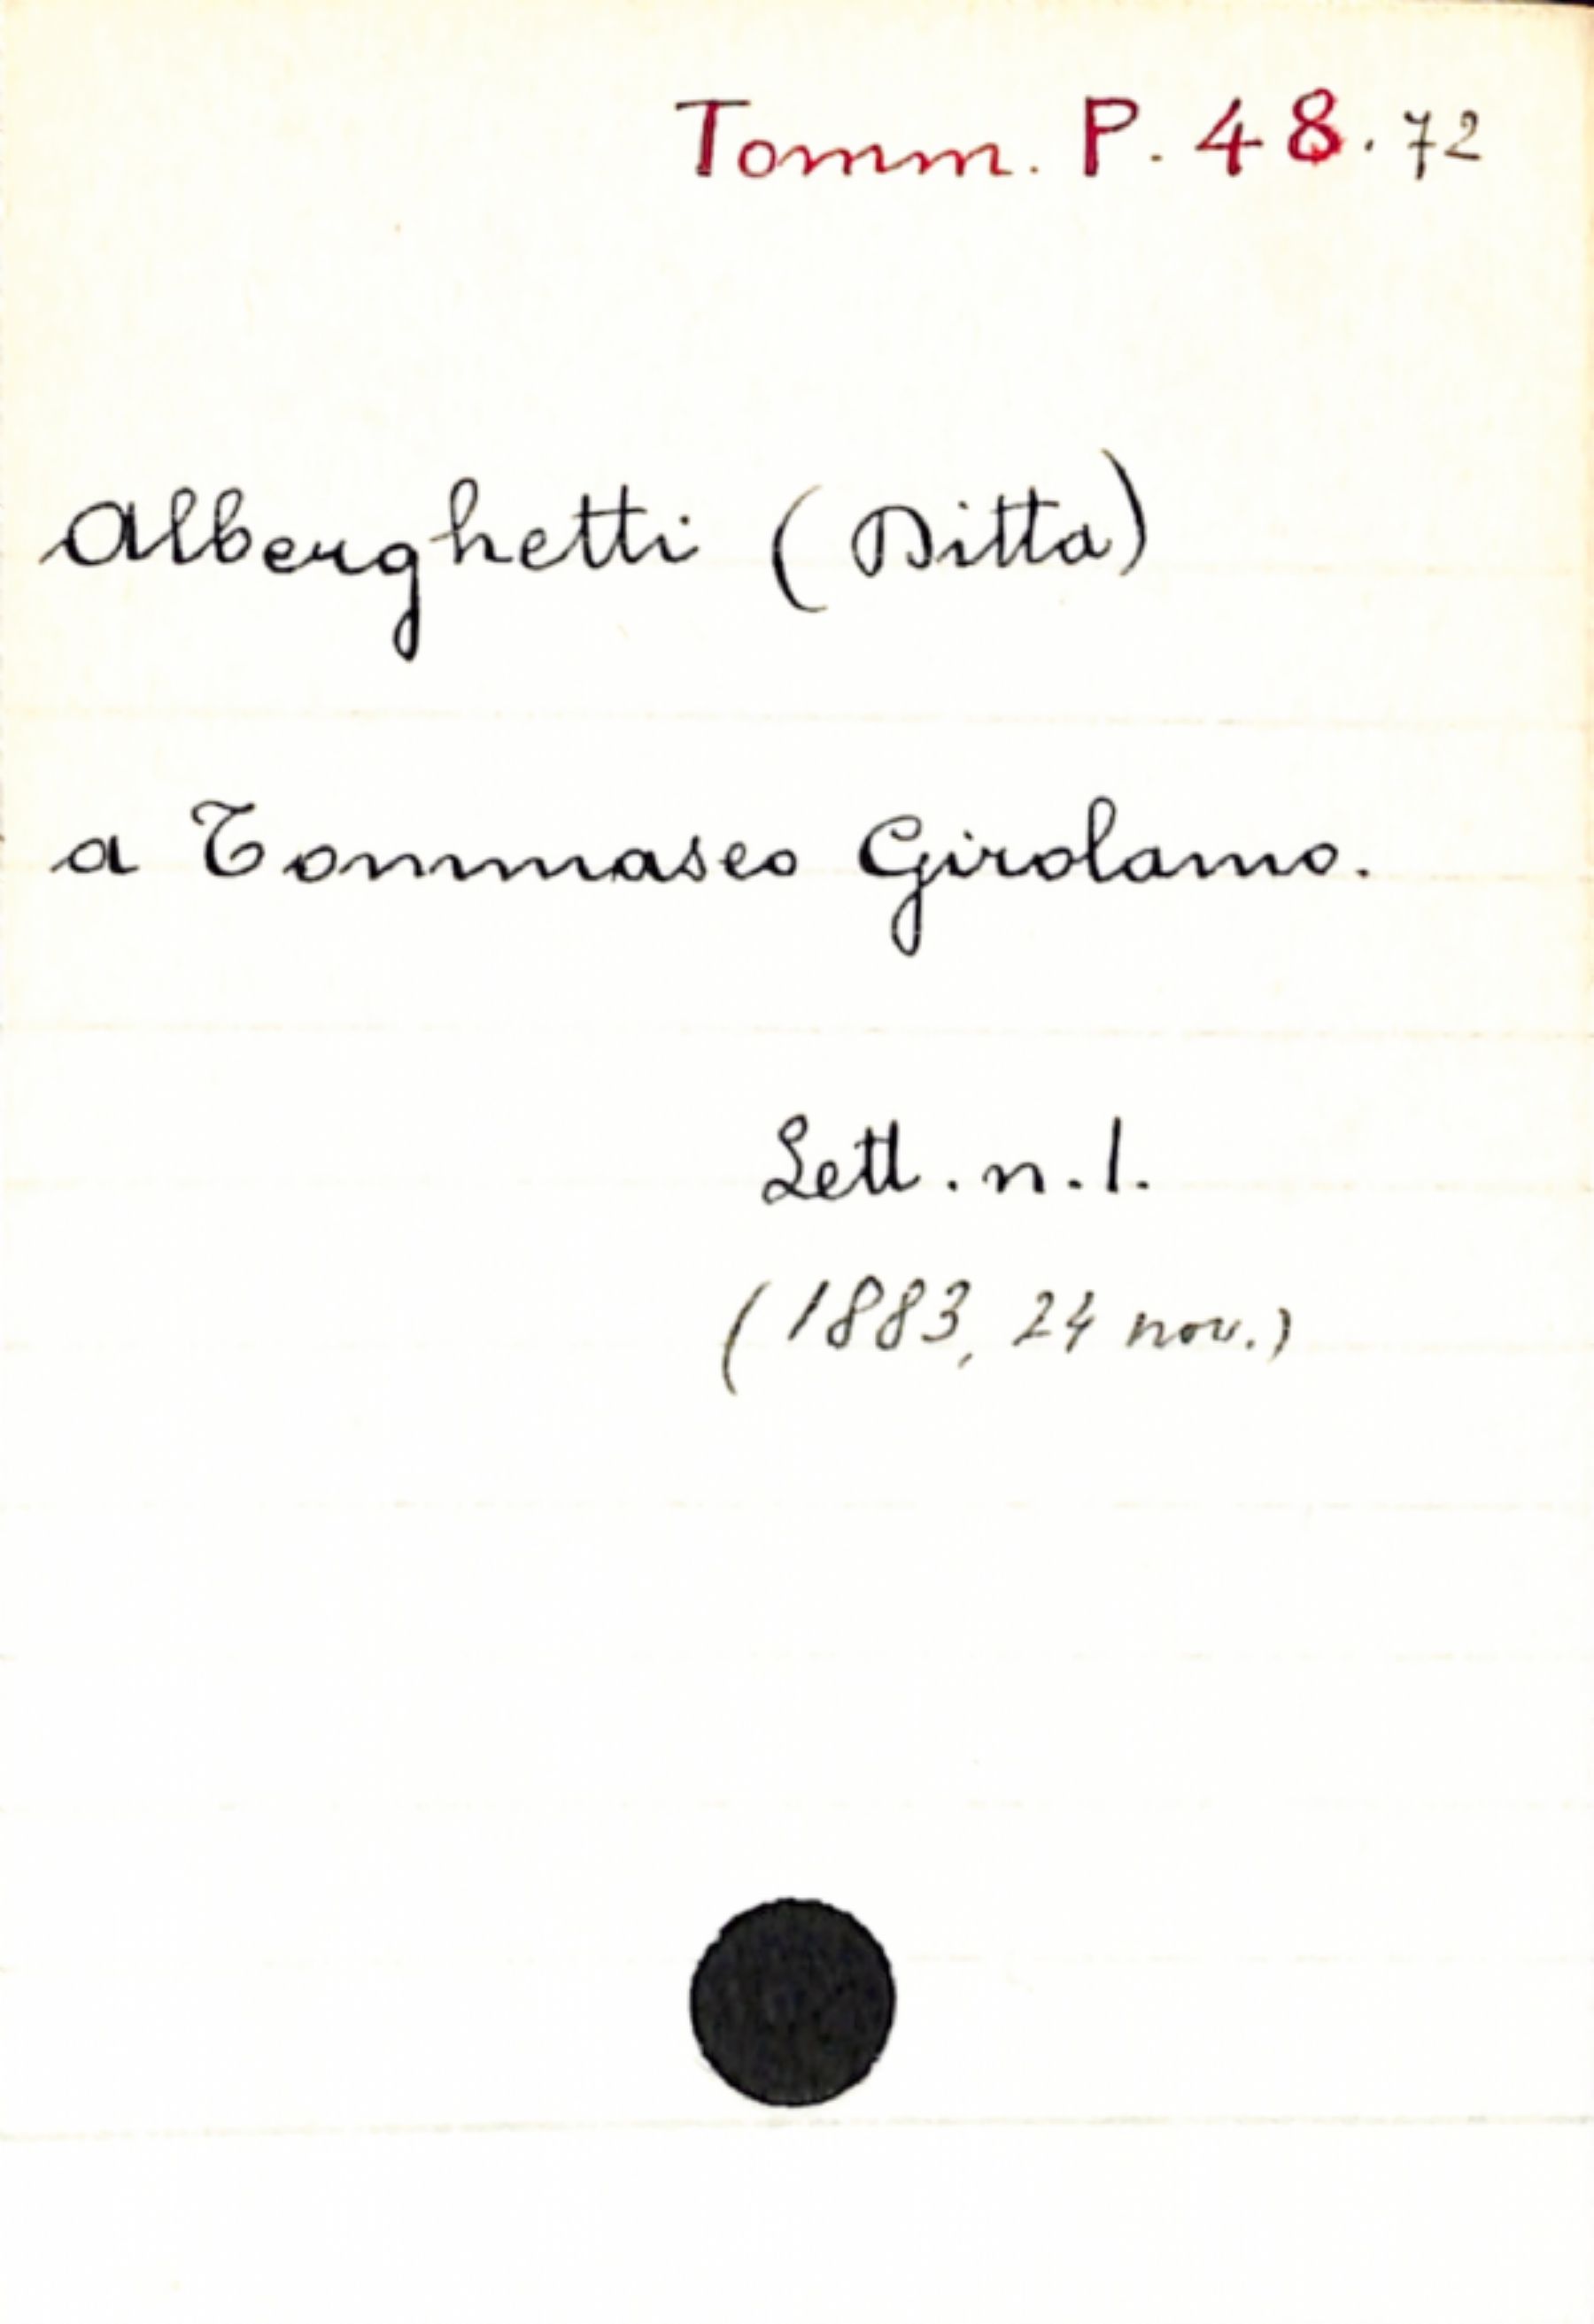 Tomm. P. 48. 72
Alberghetti (Ditta)
a Tommaseo Girolamo.
Lett. n. 1.
(1883, 24 nov.)